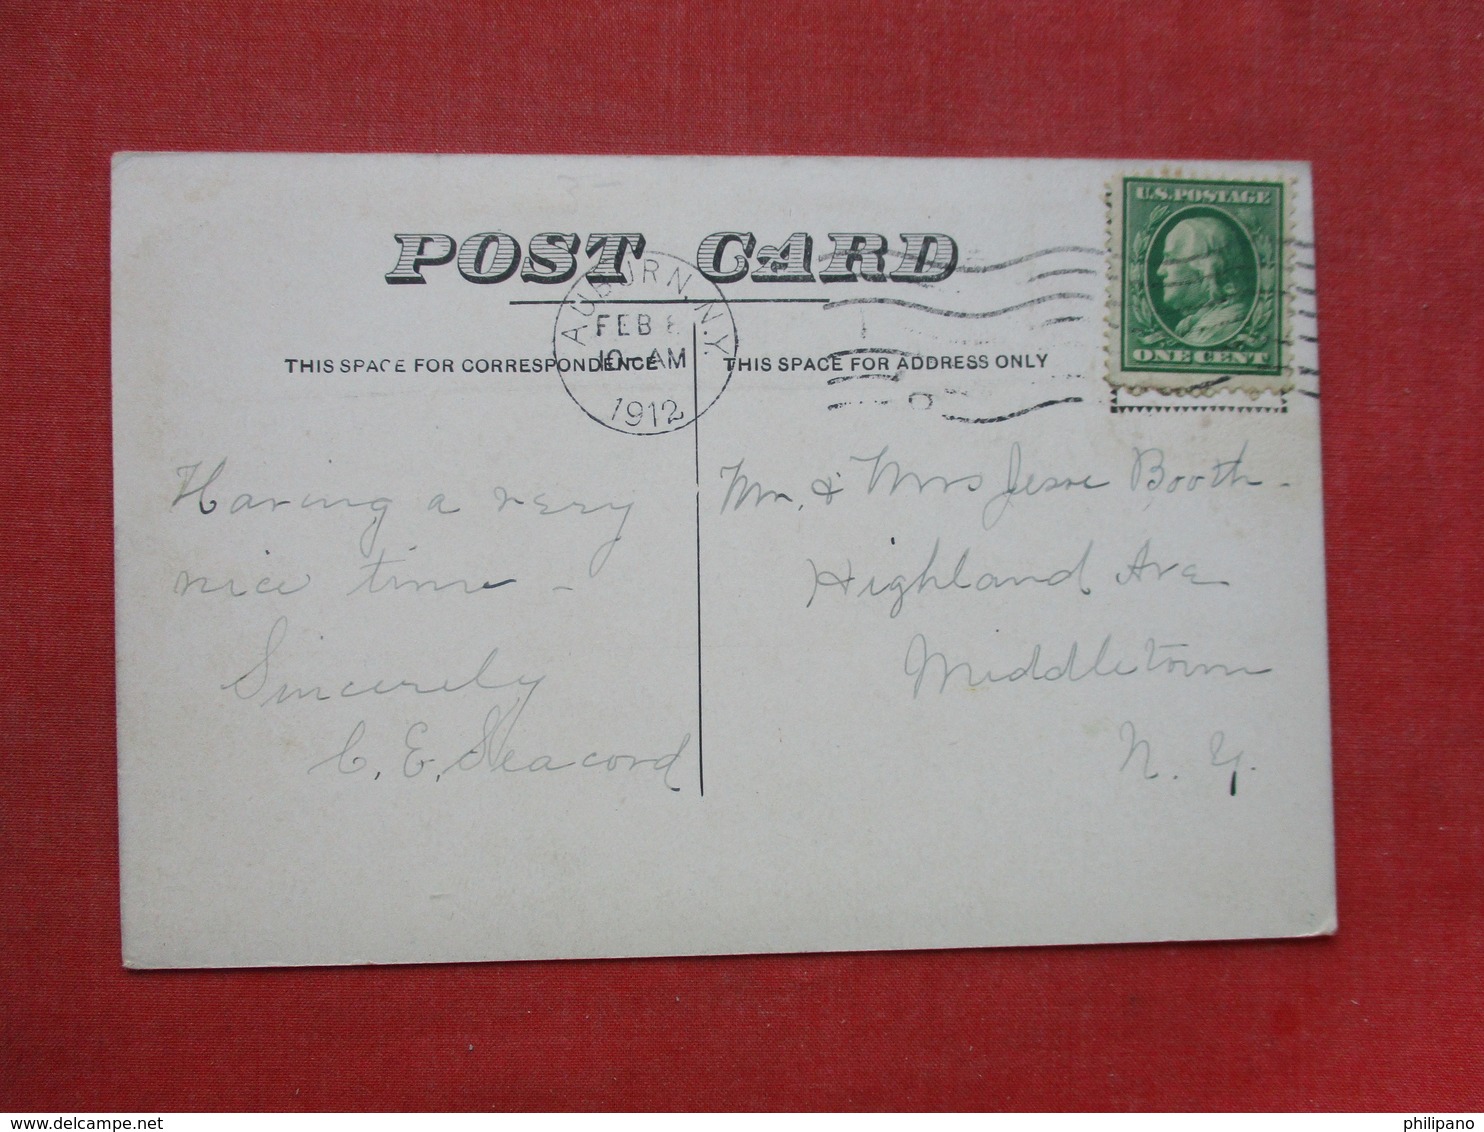 POST CARD
AUBURN, N.Y.
FEB
10 AM
1912
U.S. POSTAGE
ONE CENT
THIS SPACE FOR CORRESPONDENCE
THIS SPACE FOR ADDRESS ONLY
Having a very
nice time -
Sincerely
C. E. Seacord
Mr. & Mrs Jesse Booth -
Highland Ave
Middletown
N. Y.
www.delcampe.net
philipano